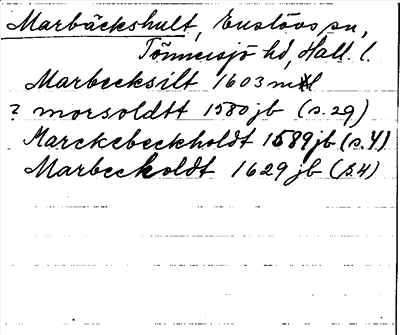 Marbäckshult, Enslövs sn,
Tönnersjö hd, Hall. l.
Marbecksilt 1603 mtl
? morsoldtt 1580 jb (s. 29)
Marckebeckholdt 1589 jb (s. 4)
Marbeckoldt 1629 jb (s. 4)